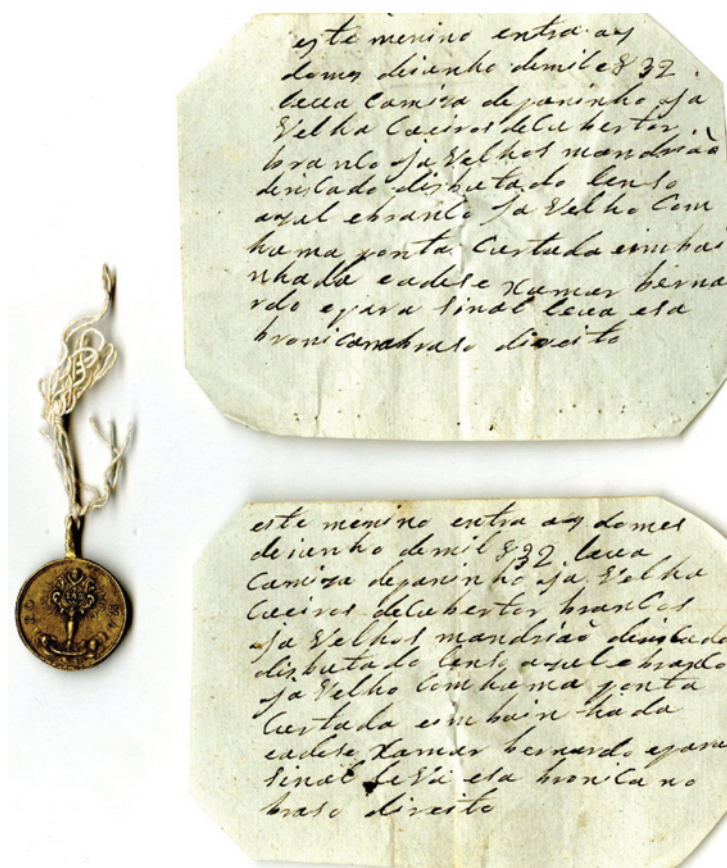 este menino entra ay
domes deianho demil e 8 32
leva Camiza depaninho ja
Velha Coeiros deCubertor
branco ja Velhos mandrião
deriscado disbutado lenso
azul ebranco ja Velho Com
huma ponta Curtada eimbai
nhada eadese xamar berna
rdo epara sinal leva esa
bronicanobraso direito
este menino entra ay domes
deianho demil 832 leva
Camiza depaninho ja Velha
Coeiros deCubertor brancos
ja Velhos mandrião deriscado
disbutado lenso azul ebranco
ja Velho Comhuma ponta
Curtada eimbain-hada
eadese xamar bernardo epara
sinal leva esa bronica no
braso direito